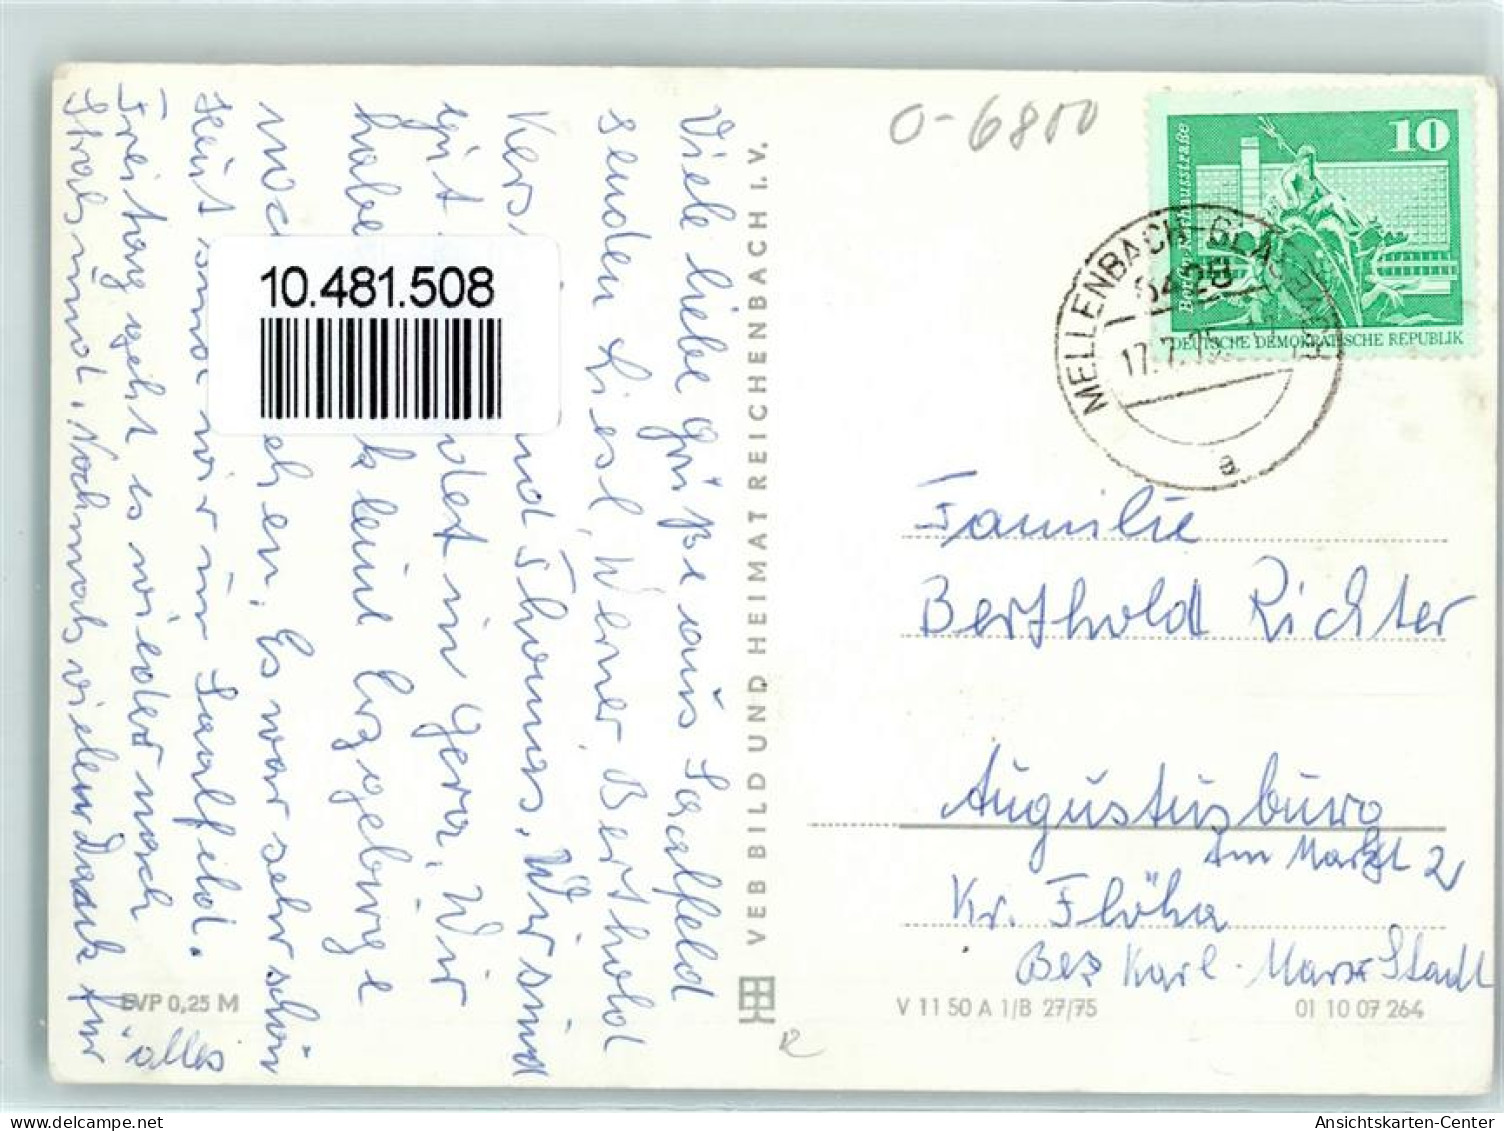 Viele liebe Grüße aus Saalfeld
senden Liesl, Werner, Berthold
und Thomas. Wir sind
gut in Gera. Wir
habe
Erzgebirge
Es war sehr schön
Heut sind wir in Saalfeld.
Freitag geht es wieder nach
Stralsund. Nochmals vielen Dank für
alles
10.481.508
EVP 0,25 M
VEB BILD UND HEIMAT REICHENBACH I. V.
O-6800
10
Berlin, Rathausstraße
DEUTSCHE DEMOKRATISCHE REPUBLIK
MELLENBACH-GLASBACH
6428
17.7.75
a
Familie
Berthold Richter
Augustusburg
Am Markt 2
Kr. Flöha
Bez Karl-Marx Stadt
V 11 50 A 1/B 27/75
01 10 07 264
Ansichtskarten-Center